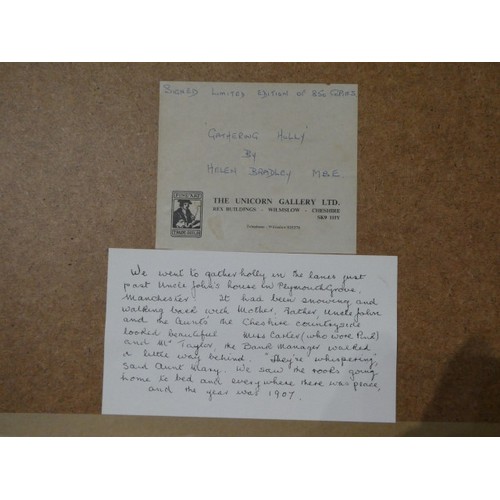 SIGNED LIMITED EDITION OF 850 COPIES
'GATHERING HOLLY'
BY
HELEN BRADLEY M.B.E.
FINE ART
TRADE GUILD
THE UNICORN GALLERY LTD.
REX BUILDINGS - WILMSLOW - CHESHIRE
SK9 1HY
Telephone: Wilmslow
We went to gather holly in the lanes just
past Uncle John's house in Plymouth Grove,
Manchester. It had been snowing and
walking back with Mother, Father, Uncle John
and the Aunts the Cheshire countryside
looked beautiful. Miss Carter (who wore Pink)
and Mr Taylor, the Bank Manager walked
a little way behind. "They're whispering",
said Aunt Mary. We saw the rooks going
home to bed and everywhere there was peace,
and the year was 1907.